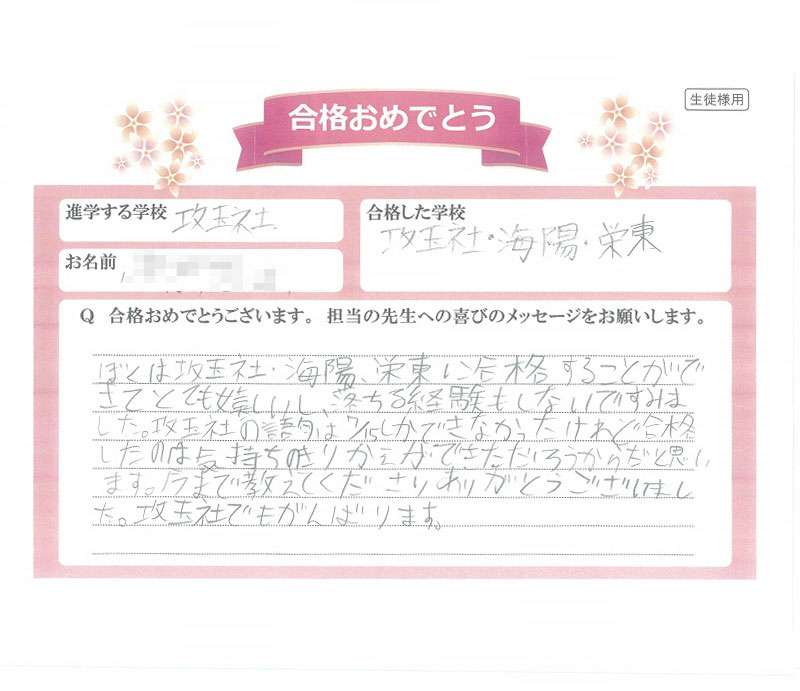 合格おめでとう
生徒様用
進学する学校 攻玉社
合格した学校
攻玉社・海陽・栄東
お名前
Q 合格おめでとうございます。担当の先生への喜びのメッセージをお願いします。
ぼくは攻玉社・海陽、栄東に合格することがで
きてとても嬉しいし、落ちる経験もしないですみま
した。攻玉社の語句は7/15しかできなかったけれど合格
したのは気持ちのきりかえができただろうからだと思い
ます。今まで教えてくださりありがとうございまし
た。攻玉社でもがんばります。